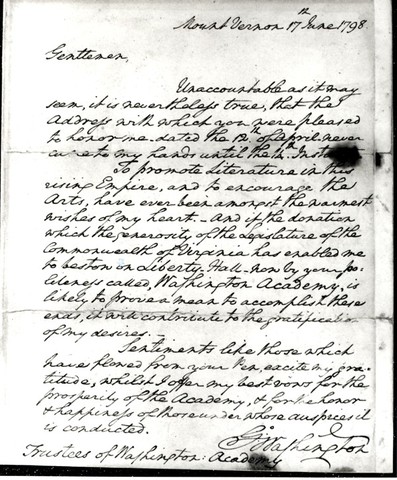 Mount Vernon 17th June 1798.
Gentlemen,
Unaccountable as it may
seem, it is nevertheless true, that the
Address with which you were pleased
to honor me dated the 12th of April never
came to my hands until the 14th Instant
To promote Literature in this
rising Empire, and to encourage the
Arts, have ever been amongst the warmest
wishes of my heart. - And if the donation
which the generosity of the Legislature of the
Commonwealth of Virginia has enabled me
to bestow on Liberty-Hall - now by your po-
liteness called, Washington Academy, is
likely to prove a mean to accomplish these
ends, it will contribute to the gratification
of my desires. -
Sentiments like those which
have flowed from your Pen, excite my gra-
titude, whilst I offer my best vows for the
prosperity of the Academy, & for the honor
& happiness of those under whose auspices it
is conducted.
Go: Washington
Trustees of Washington: Academy